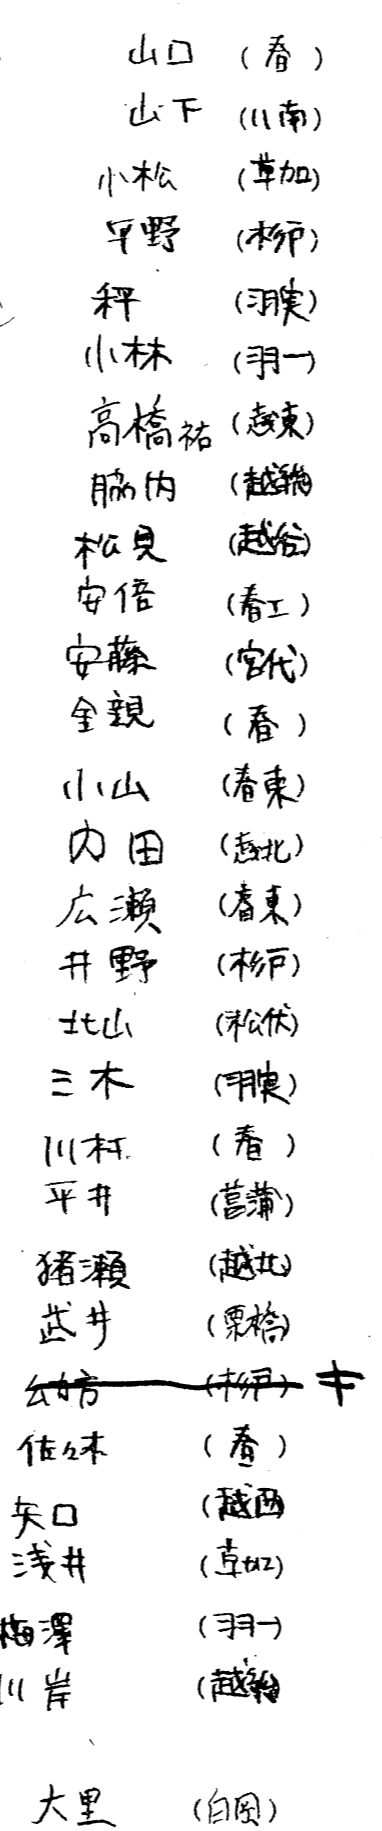 山口 (春)
山下 (川南)
小松 (草加)
平野 (杉戸)
秤 (羽実)
小林 (羽一)
高橋祐 (越東)
脇内
松見 (越谷)
安倍 (春工)
安藤 (宮代)
金親 (春)
小山 (春東)
内田 (越北)
広瀬 (春東)
井野 (杉戸)
北山 (松伏)
三木 (羽実)
川村 (春)
平井 (菖蒲)
猪瀬 (越北)
武井 (栗橋)
(杉戸)
佐々木 (春)
矢口 (越西)
浅井 (草加)
梅澤 (羽一)
川岸
大里 (白岡)